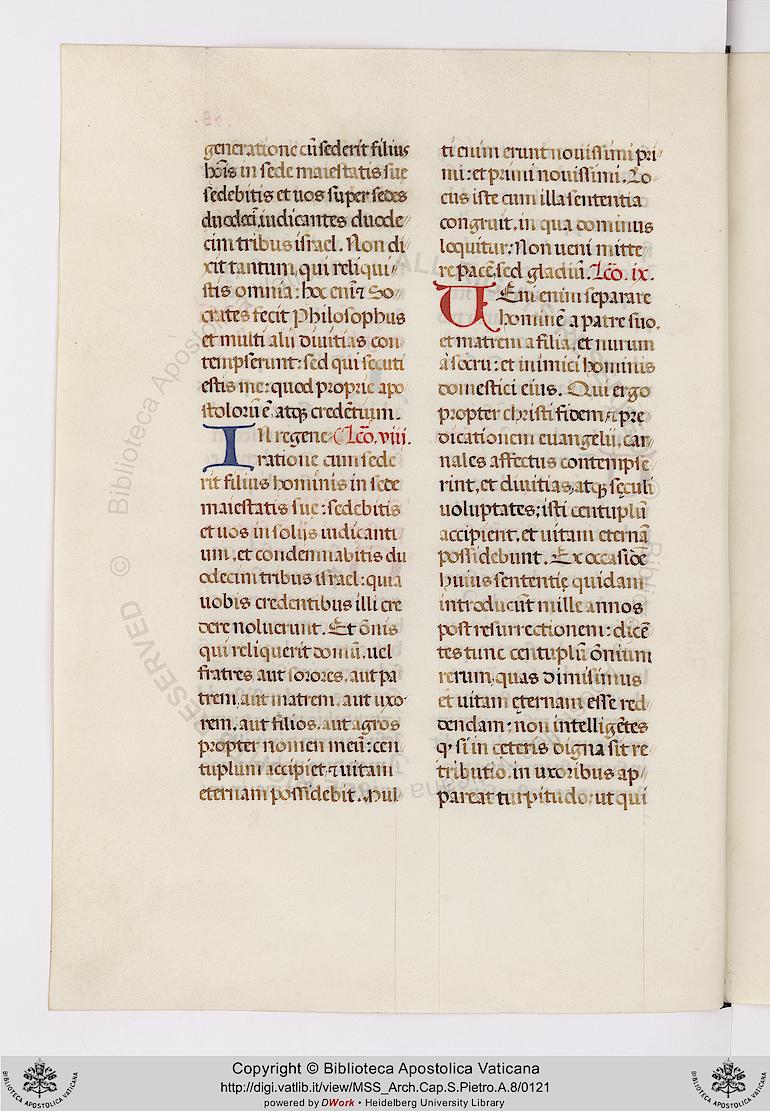 generatione cũ sederit filius
hoĩs in sede maiestatis sue
sedebitis et uos super sedes
duodecĩ, iudicantes duode
cim tribus israel. Non di
xit tantum, qui reliqui
stis omnia: hoc eniȝ So
crates fecit Philosophus
et multi alii diuitias con
tempserunt: sed qui secuti
estis me: quod proprie apo
stolorũ ẽ atqȝ credẽtium.
In regene Lcõ. viii.
ratione cum sede
rit filius hominis in sede
maiestatis sue: sedebitis
et uos in solijs iudicanti
um, et condemnabitis du
odecim tribus israel: quia
uobis credentibus illi cre
dere noluerunt. Et õnis
qui reliquerit domũ, uel
fratres, aut sorores, aut pa
trem, aut matrem, aut uxo
rem, aut filios, aut agros
propter nomen meũ: cen
tuplum accipiet, ⁊ uitam
eternam possidebit. Mul
ti enim erunt nouissimi pri
mi: et primi nouissimi. Lo
cus iste cum illa sententia
congruit, in qua dominus
loquitur: Non ueni mitte
re pacẽ, sed gladiũ. Lcõ. ix.
UEni enim separare
hominẽ a patre suo,
et matrem a filia, et nurum
a socru: et inimici hominis
domestici eius. Qui ergo
propter christi fidem, ⁊ pre
dicationem euangelii, car
nales affectus contempse
rint, et diuitias, atqȝ sęculi
uoluptates: isti centuplũ
accipient, et uitam eternã
possidebunt. Ex occasiõe
huius sententię quidam
introducũt mille annos
post resurrectionem: dicẽ
tes tunc centuplũ õnium
rerum, quas dimisimus
et uitam ęternam esse red
dendam: non intelligẽtes
ꝙ si in ceteris digna sit re
tributio, in uxoribus ap
pareat turpitudo: ut qui
Copyright © Biblioteca Apostolica Vaticana
http://digi.vatlib.it/view/MSS_Arch.Cap.S.Pietro.A.8/0121
powered by DWork • Heidelberg University Library